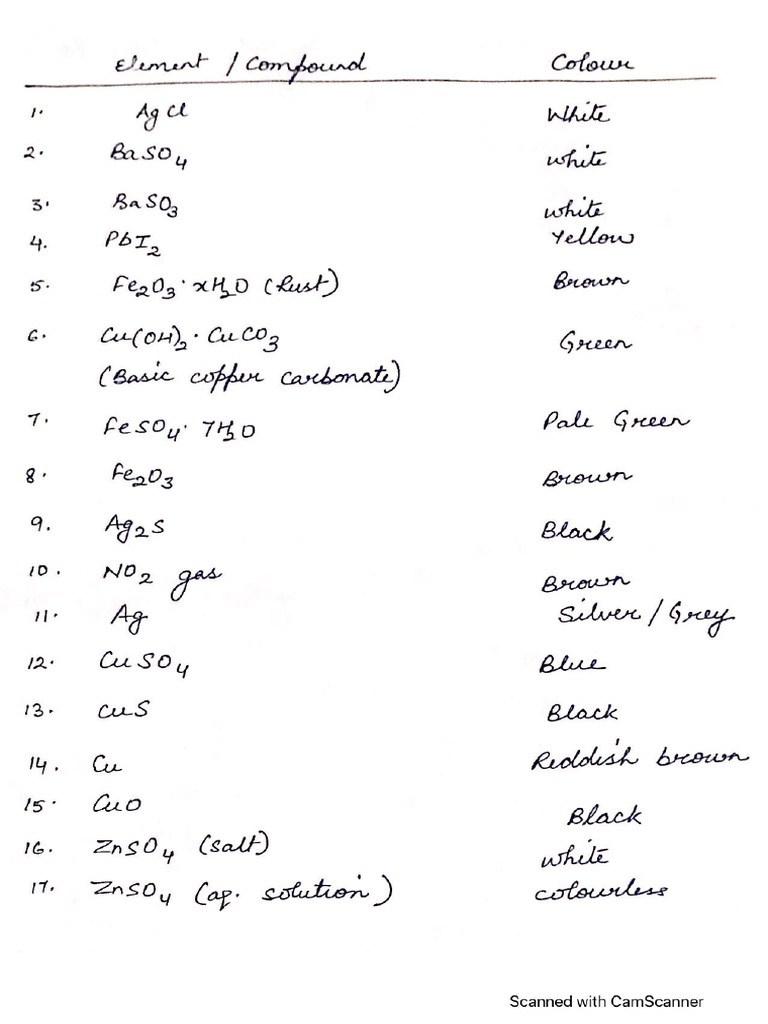 Element / Compound Colour
1. AgCl White
2. BaSO4 white
3. BaSO3 white
4. PbI2 Yellow
5. Fe2O3·xH2O (Rust) Brown
6. Cu(OH)2·CuCO3 Green
(Basic copper carbonate)
7. FeSO4·7H2O Pale Green
8. Fe2O3 Brown
9. Ag2S Black
10. NO2 gas Brown
11. Ag Silver / Grey
12. CuSO4 Blue
13. CuS Black
14. Cu Reddish brown
15. CuO Black
16. ZnSO4 (salt) white
17. ZnSO4 (aq. solution) colourless
Scanned with CamScanner